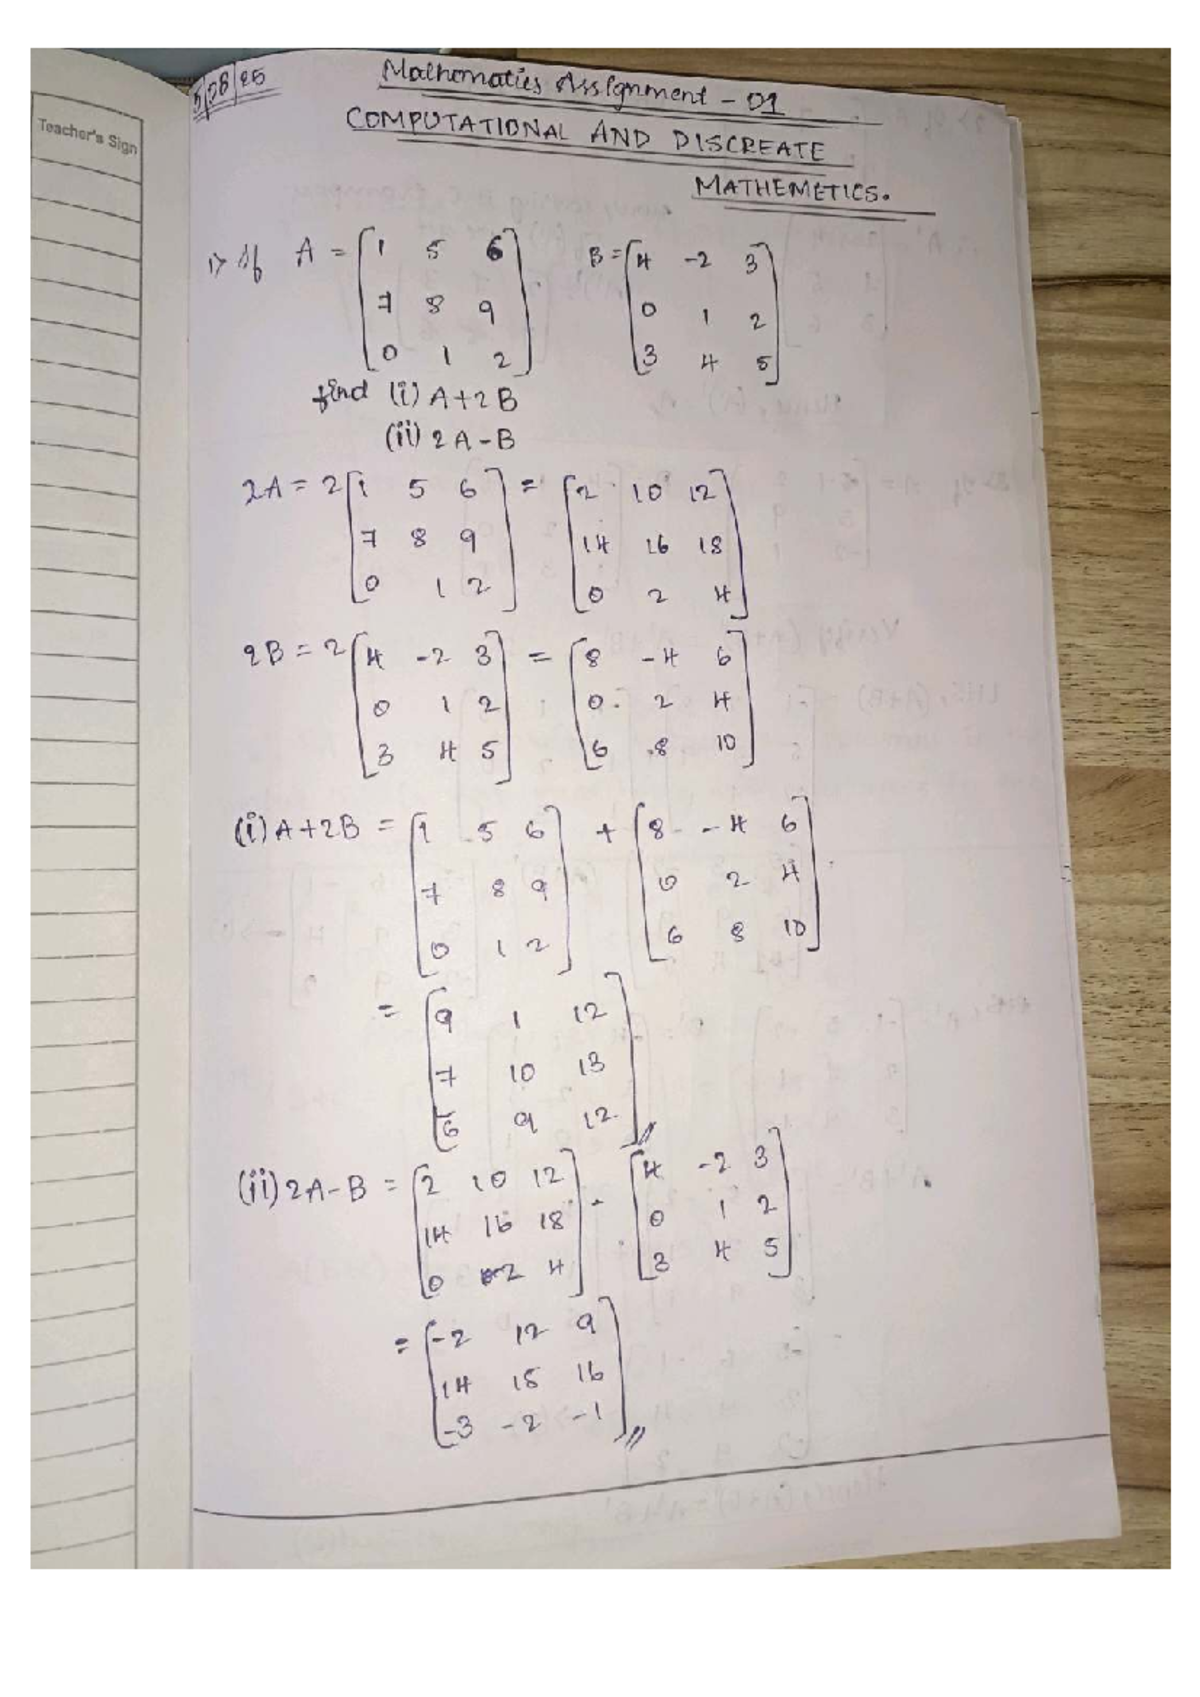 Teacher's Sign
5/08/25
Mathematics Assignment - 01
COMPUTATIONAL AND DISCREATE
MATHEMETICS.
1> If A = [1 5 6 B = [4 -2 3
7 8 9 0 1 2
0 1 2] 3 4 5]
find (i) A+2B
(ii) 2A-B
2A = 2[1 5 6 = [2 10 12
7 8 9 14 16 18
0 1 2] 0 2 4]
2B = 2[4 -2 3 = [8 -4 6
0 1 2 0 2 4
3 4 5] 6 8 10]
(i) A+2B = [1 5 6 + [8 -4 6
7 8 9 0 2 4
0 1 2] 6 8 10]
= [9 1 12
7 10 13
6 9 12]//
(ii) 2A-B = [2 10 12 - [4 -2 3
14 16 18 0 1 2
0 2 4] 3 4 5]
= [-2 12 9
14 15 16
-3 -2 -1]//